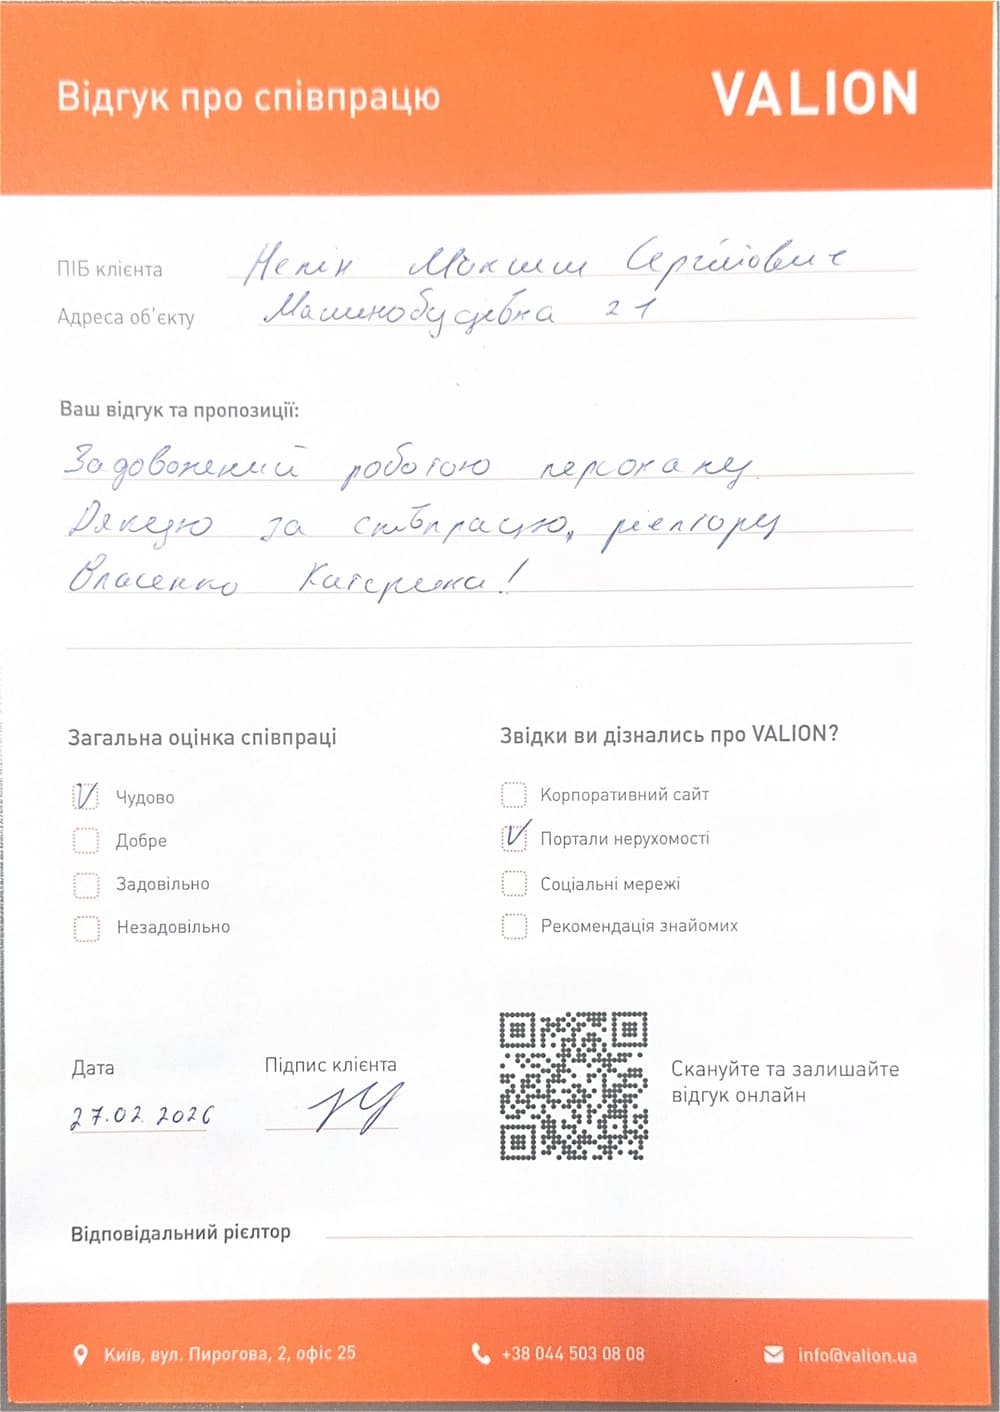 Відгук про співпрацю
VALION
ПІБ клієнта Непін Максим Сергійович
Адреса об'єкту Машинобудівна 21
Ваш відгук та пропозиції:
Задоволений роботою персоналу.
Дякую за співпрацю, рієлтору
Власенко Катерина!
Загальна оцінка співпраці
V Чудово
Добре
Задовільно
Незадовільно
Звідки ви дізнались про VALION?
Корпоративний сайт
V Портали нерухомості
Соціальні мережі
Рекомендація знайомих
Дата
27.02.2026
Підпис клієнта
Скануйте та залишайте
відгук онлайн
Відповідальний рієлтор
Київ, вул. Пирогова, 2, офіс 25
+38 044 503 08 08
info@valion.ua